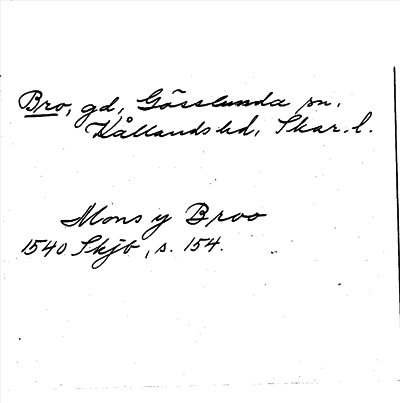 Bro, gd, Gösslunda sn,
Kållands hd, Skar. l.
Mons y Broo
1540 Skjb, s. 154.